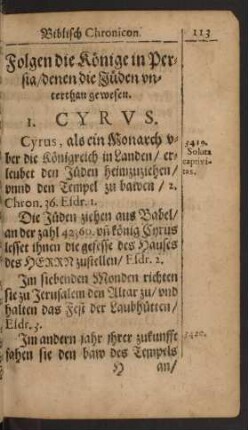 Biblisch Chronicon. 113
Folgen die Könige in Per-
sia/denen die Jüden vn-
terthan gewesen.
1. CYRVS.
Cyrus, als ein Monarch v-
ber die Königreich in Landen/ er-
leubet den Jüden heimzuziehen/
vnnd den Tempel zu bawen / 2.
Chron. 36. Esdr. 1.
3419.
Soluta
captivi-
tas.
Die Jüden ziehen aus Babel/
an der zahl 42360. vñ könig Cyrus
lesset ihnen die gefesse des Hauses
des HERRN zustellen/ Esdr. 2.
Im siebenden Monden richten
sie zu Jerusalem den Altar zu/ vnd
halten das Fest der Laubhütten/
Esdr. 3.
Im andern jahr jhrer zukunfft
fahen sie den baw des Tempels
3420.
H an/